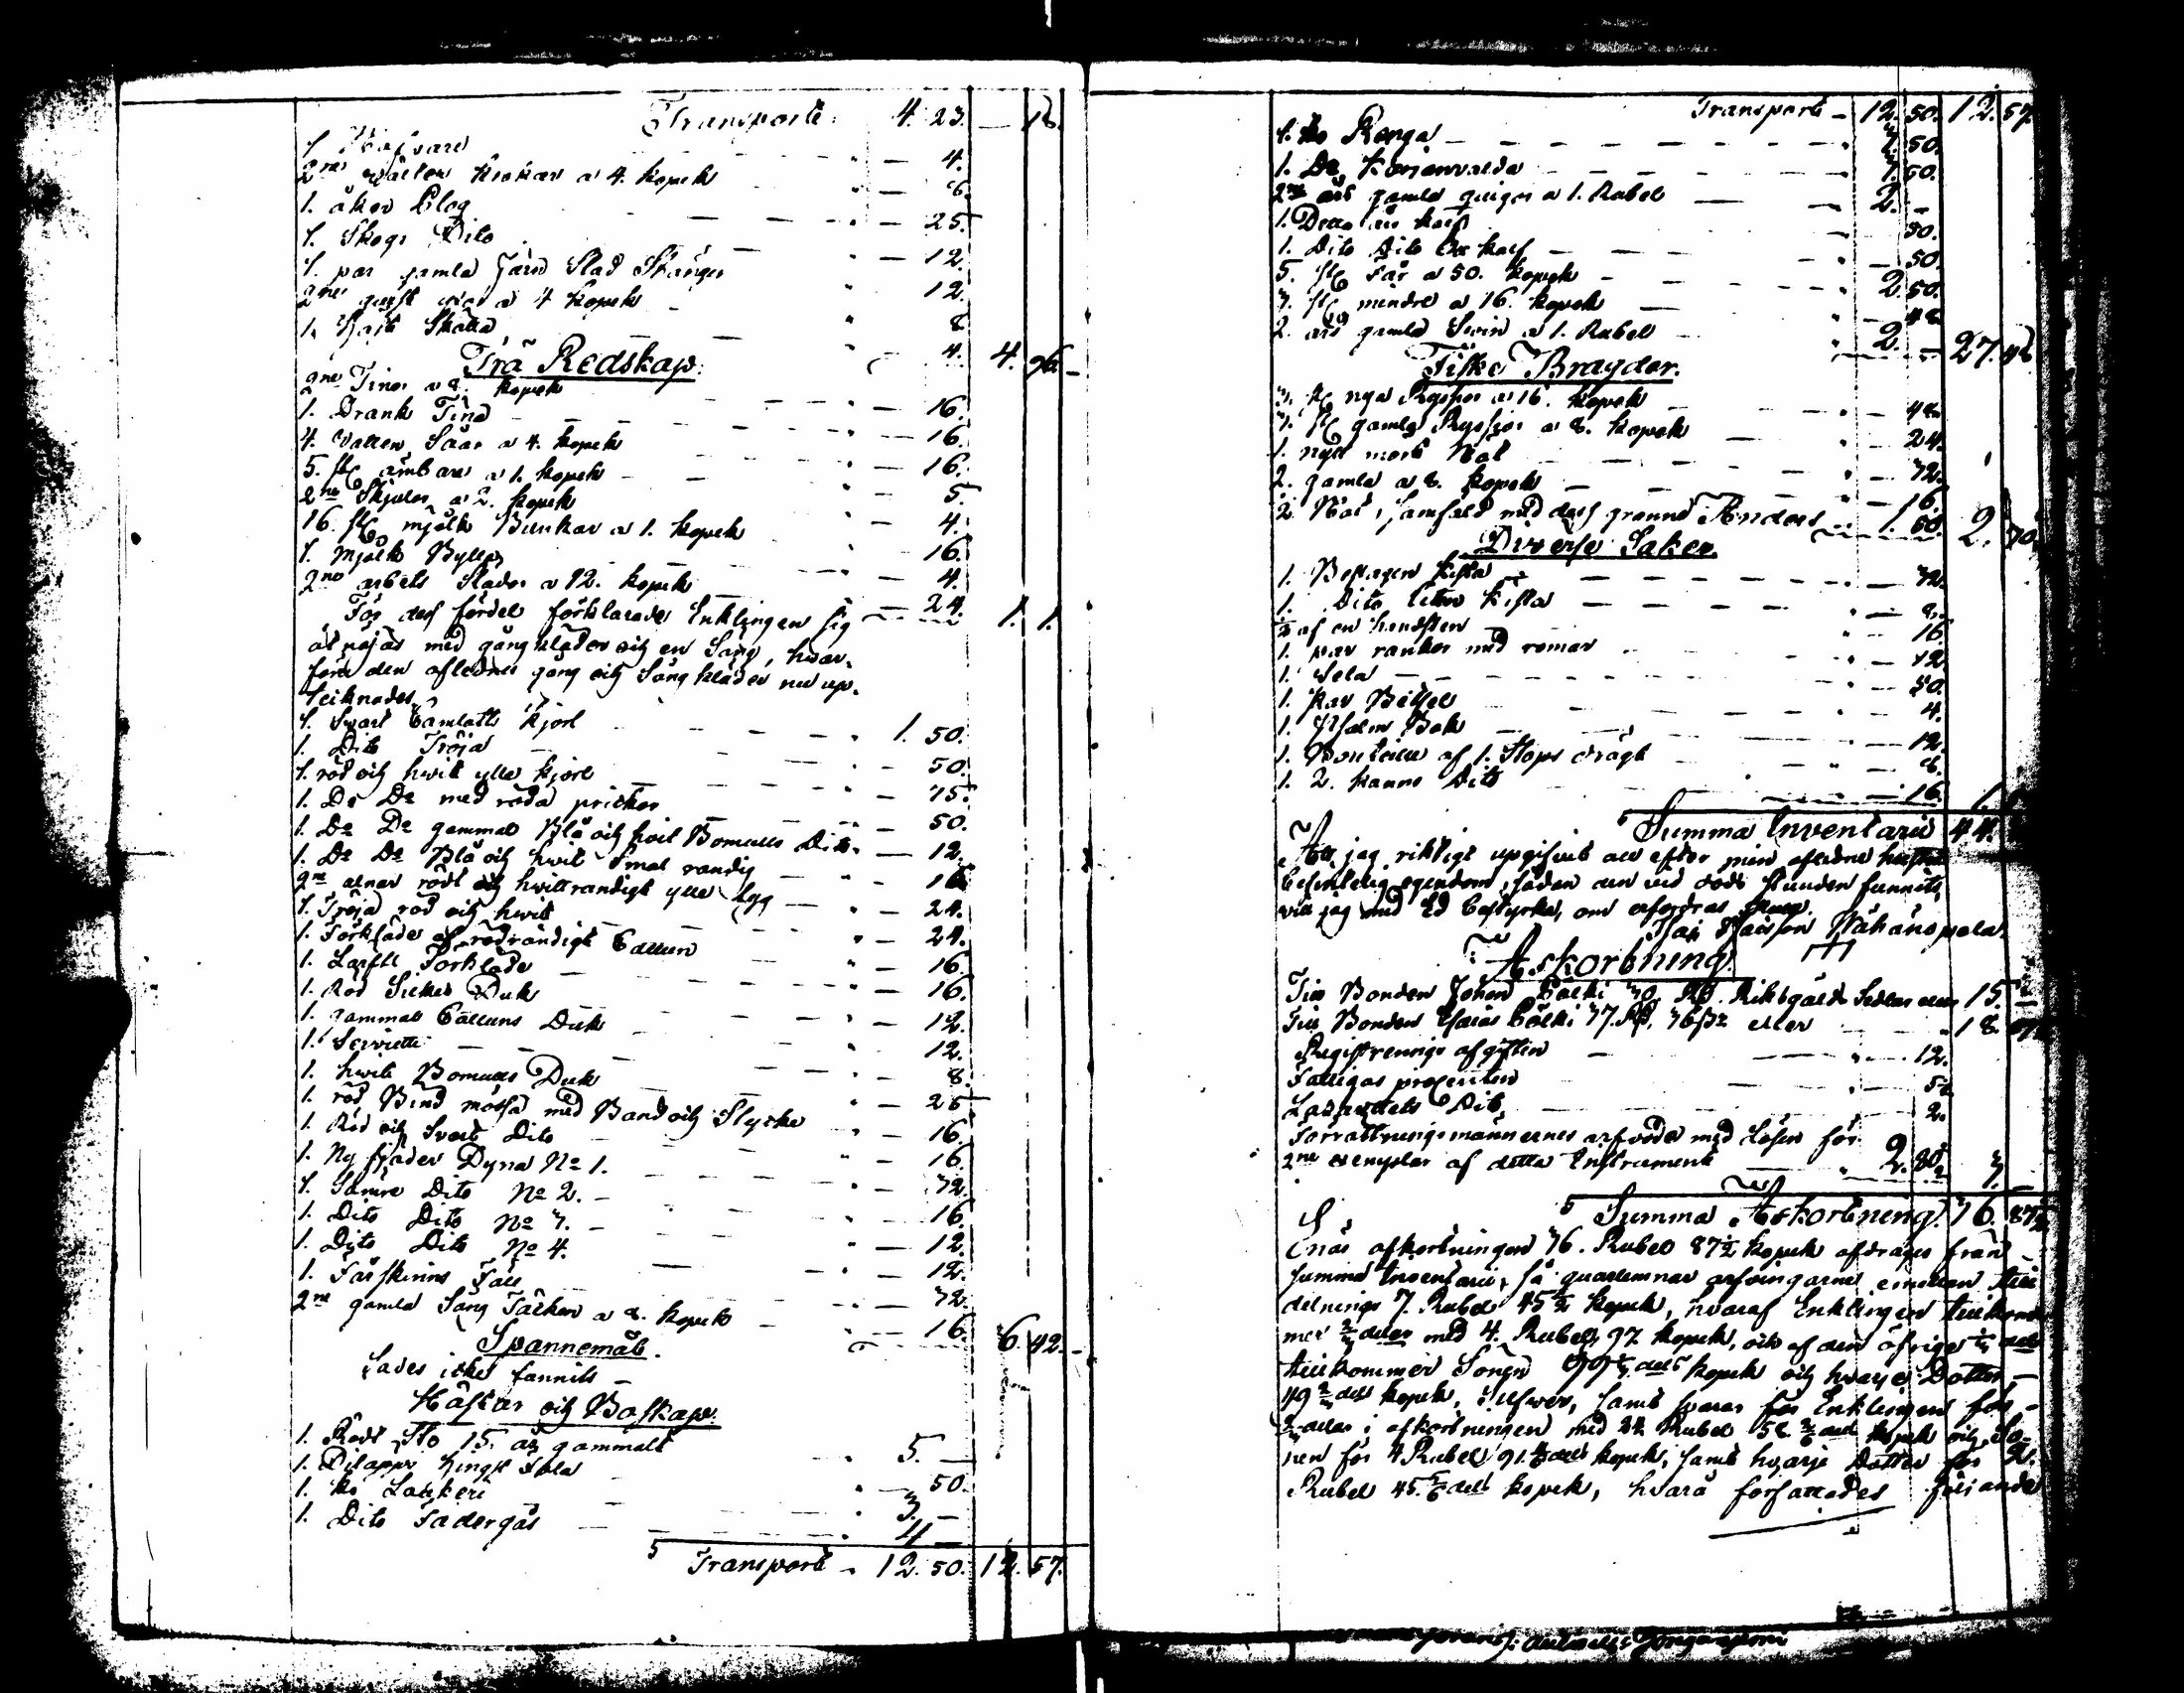 Transporte 4. 23. — 18.
1 Näfvare — 4.
2ne wälton Krokar a 4. kopek — 8.
1. åker Plog — 25.
1. Skogs Dito — 12.
1. par gamla Järn Slad Stänger — 12.
2ne a 4 kopek — 8
1. Skälla — 4. 4. 96.
Trä Redskap.
2ne Tinor a 8. kopek — 16.
1. Drank Tina — 16.
4. Vatten Såar a 4. kopek — 16.
5. st ämbare a 1. kopek — 5.
2ne Skjulor a 2. kopek — 4.
16. st mjölk Bunkar a 1. kopek — 16.
1. mjölk Bytta — 4.
2ne arbets Slädor a 12. kopek — 24. 1. 1.
För dess fördel förklarade Enklingen sig
åt nöjas med gångkläder och en Säng, hvar-
före den aflednes gång och Sängkläder nu up-
teiknades,
1. Svart Camlotts Kjorl 1. 50.
1. Dito Tröja — 50.
1. röd och hwit ylle kjorl — 75.
1. Do Do med röda prickor — 50.
1. Do Do gammal Blå och hvit Bomulls Dito — 12.
1. Do Do Blå och hwit Smal randig — 16
2ne alnar rödt och hwittrandigt ylle tyg — 24.
1. Tröja röd och hwit — 24.
1. Förkläde af rödrandigt Cattun — 16.
1. Lärfts Förkläde — 16.
1. Röd Silkes Duk — 12.
1. gammal Cattuns Duk — 12.
1. Serviette — 8.
1. hwit Bomulls Duk — 25
1. röd Bind mössa med Band och Stycke — 16.
1. Röd och Svart Dito — 16.
1. Ny fjäder Dyna No 1. — 32.
1. Sämre Dito No 2. — 16.
1. Dito Dito No 3. — 12.
1. Dito Dito No 4. — 12.
1. Fårskinns Fäll — 32.
2ne gamla Säng Täcken a 8. kopek — 16. 6. 42.
Spannemål.
Sades icke funnits —
Hästar och Boskap.
1. Rödt Sto 15. år gammalt 5. —
1. Hingst Fåla — 50.
1. ko Laukeri 3. —
1. Dito Sadergås 4 —
Transport 12. 50. 12. 57.
Transport 12. 50. 12. 57.
1. ko Renga 3. 50.
1. Do Karjanvalda 3. 50.
2ne års gamla quigor a 1. Rubel 2. —
1. Detta års kalf — 50.
1. Dito Dito Ox kalf — 50.
5. st Får a 50. kopek 2. 50.
3. st mindre a 16. kopek — 48.
2. års gamla Svin a 1. Rubel 2. — 27. 48
Fiske Bragder.
3. st nya Ryssjor a 16. kopek — 48
3. st gamla Ryssjor a 8. kopek — 24.
1. nytt mört Nät — 32.
2. gamla a 8. kopek — 16.
2. Not, samfäld med dess granne Anders 1. 50 2. 70.
Diverse Saker
1. Beslagen Kista — 32.
1. Dito liten Kista — 8.
½ af en handsten — 16
1. par rankor med remar — 12
1. Sela — 50.
1. par Betsel — 4.
1. Psalm Bok — 12.
1. Bouteille af 1. Stops drägt — 8.
1. 2. kanns Dito — 16. 1.
Summa Inventarii 44.
At jag riktigt upgifvit all efter min aflidne hustru
befintelig egendom, sådan den vid döds stunden funnits,
vill jag med Ed bestyrka, om erfordras skall.
Afkortning.
Till Bonden Johan Cälki 30. Rd. Riksgälds Sedlar eller 15.
Till Bonden Cälki 37. Rd. 36 sk eller 18.
Registrerings afgiften — 12.
Fattigas procenten — 5
Lazarettets Dito — 2.
Förrättningsmännernes arfvode med Lösen för
2ne exemplar af detta Instrument 2. 80½ 3. —
Summa Afkortning. 36. 87½
När afkortningen 36. Rubel 87½ kopek afdrages från
Summa Inventarii, så quarlemnar arfvingarne emellan till
delnings 7. Rubel 45½ kopek, hvaraf Enklingen tillkom-
mer ⅔ delar med 4. Rubel 97 kopek, och af den öfriga ⅓ del
tillkommer Sonen 99 dels kopek och hvarje Dotter
49 dels kopek, Silfwer, samt svarar för Enklingens för
⅔ delar i afkortningen med 24 Rubel 58 dels kopek och So-
nen för 4 Rubel 91. dels kopek, samt hvarje Dotter för 2.
Rubel 45. dels kopek, hvarå författades följande